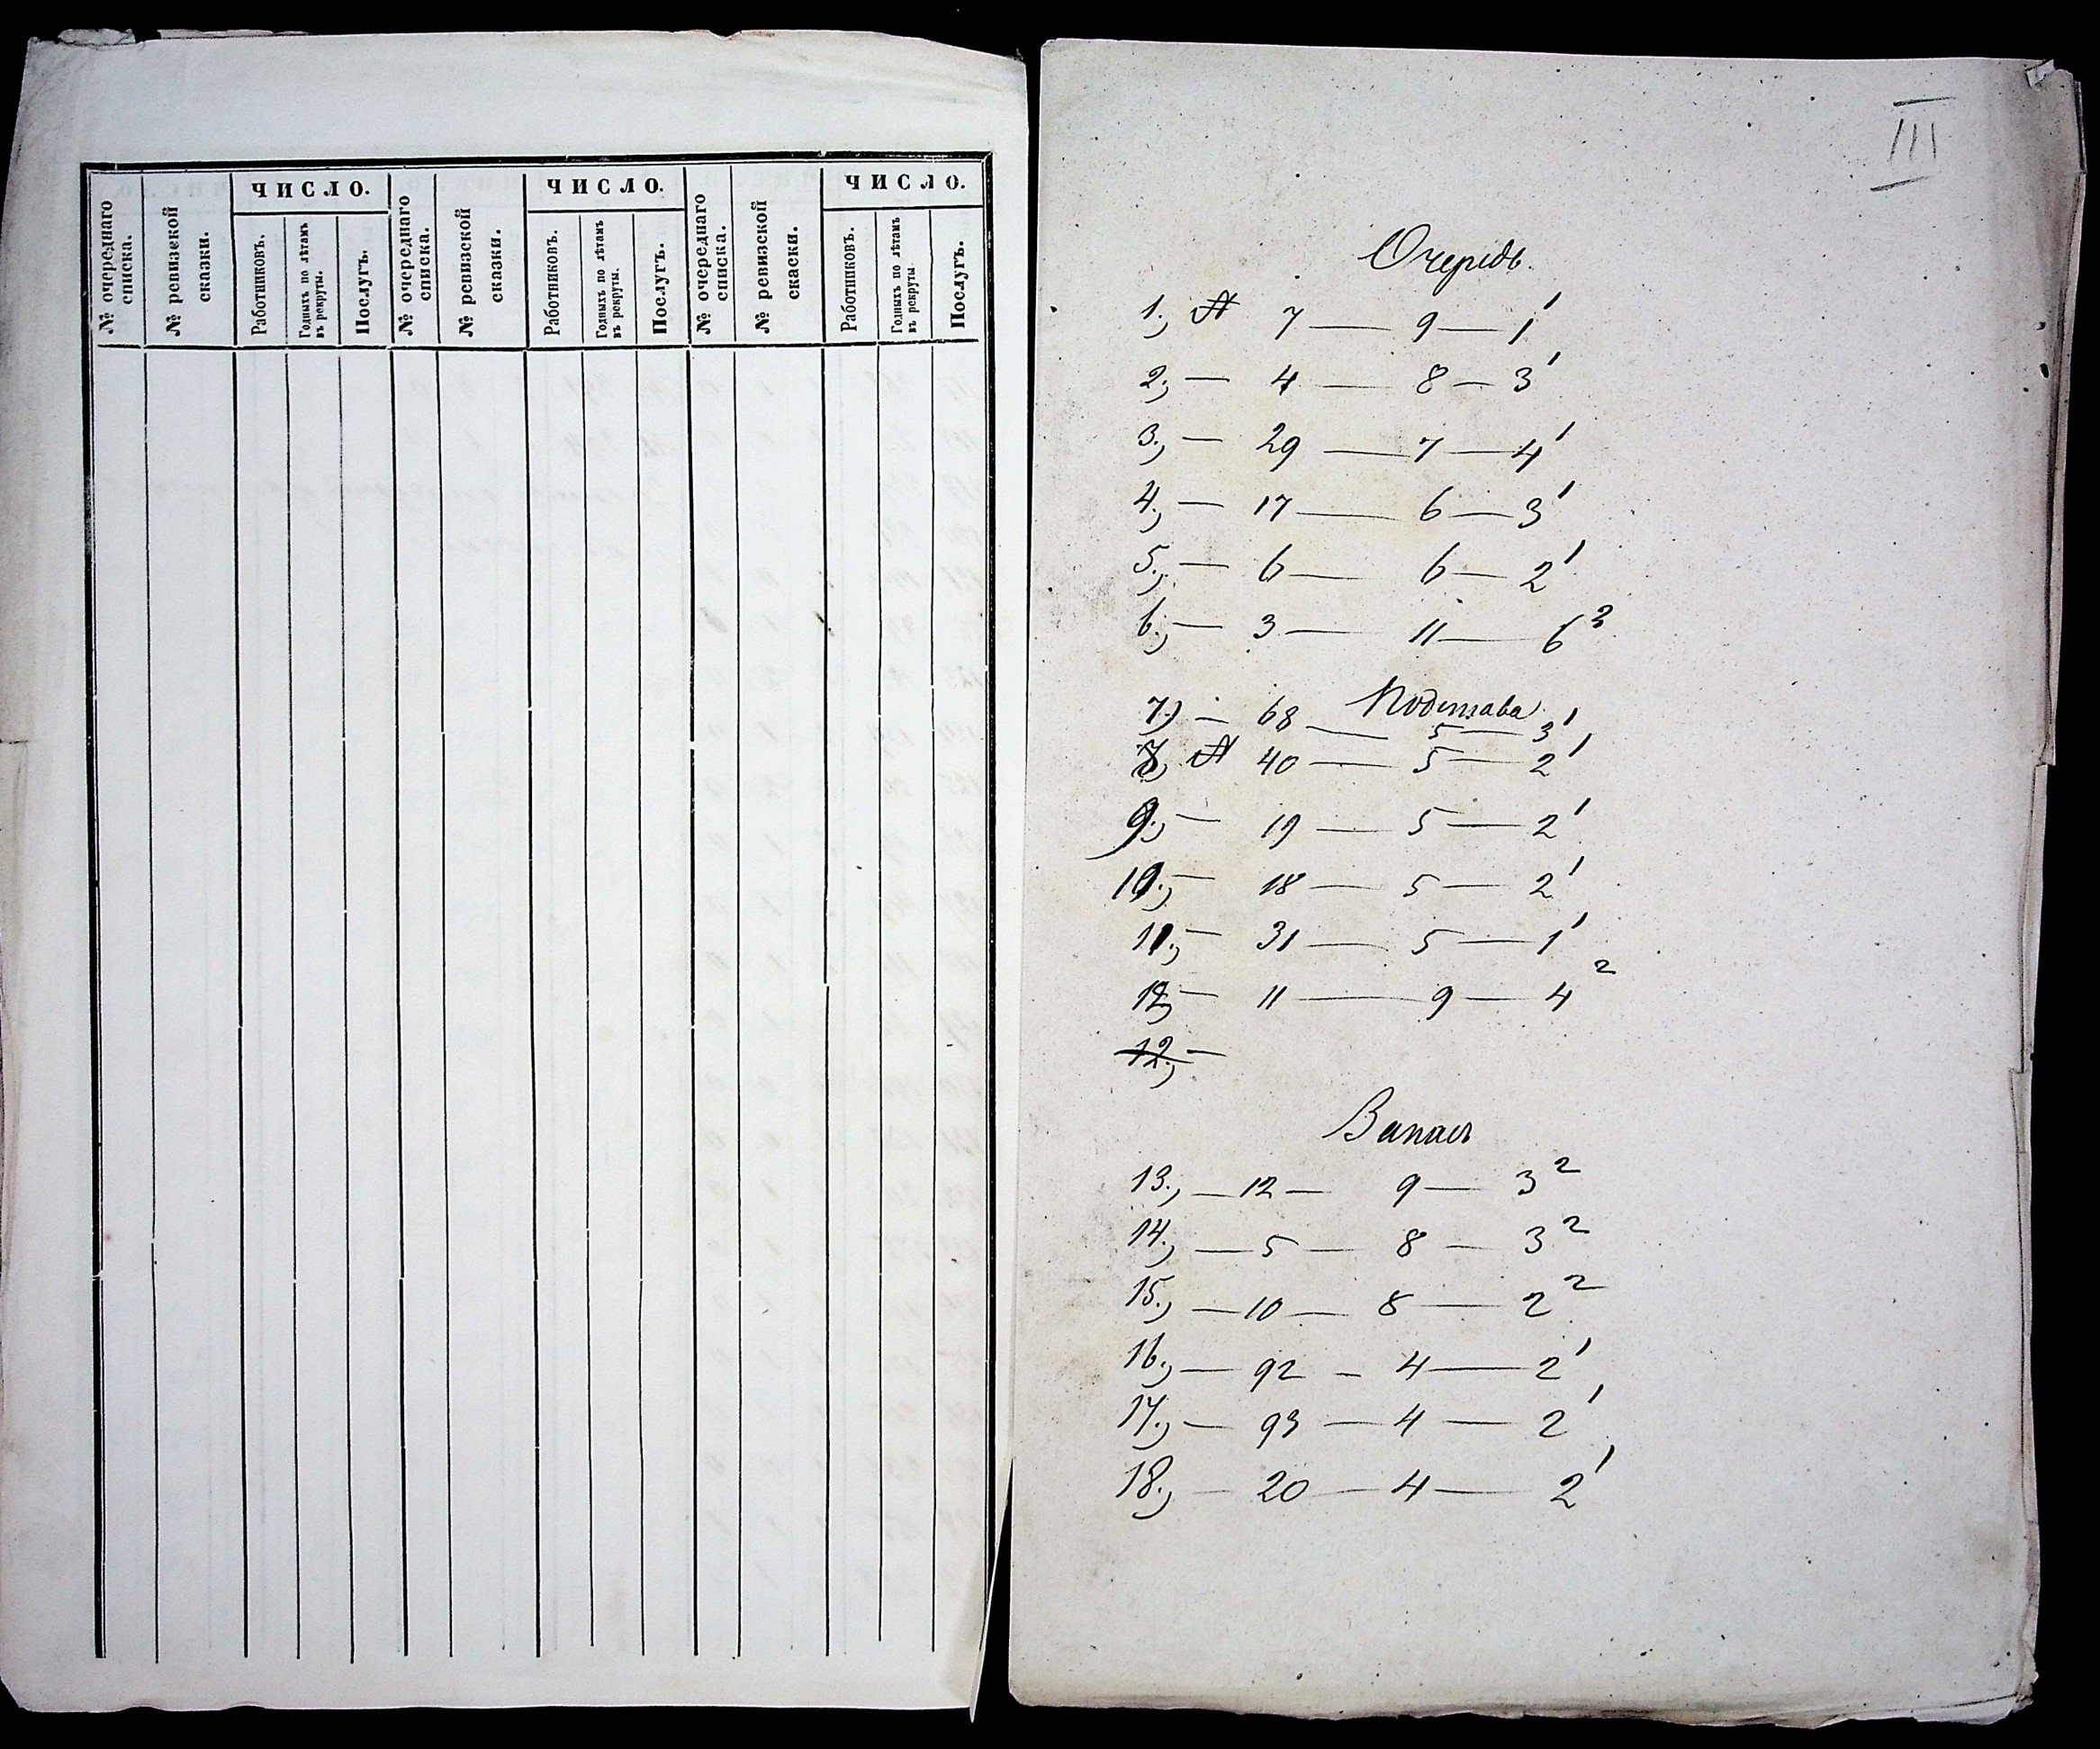 ЧИСЛО. ЧИСЛО. ЧИСЛО.
№ очереднаго списка.
№ ревизской сказки.
Работниковъ.
Годныхъ по лѣтамъ въ рекруты.
Послугъ.
№ очереднаго списка.
№ ревизской сказки.
Работниковъ.
Годныхъ по лѣтамъ въ рекруты.
Послугъ.
№ очереднаго списка.
№ ревизской скаски.
Работниковъ.
Годныхъ по лѣтамъ въ рекруты
Послугъ.
III
Очередь.
1., № 7 — 9 — 1 1
2., — 4 — 8 — 3 1
3., — 29 — 7 — 4 1
4., — 17 — 6 — 3 1
5., — 6 — 6 — 2 1
6., — 3 — 11 — 6 3
Подстава
7.) — 68 — 5 — 3 1
8., № 40 — 5 — 2 1
9., — 19 — 5 — 2 1
10., — 18 — 5 — 2 1
11., — 31 — 5 — 1 1
12, — 11 — 9 — 4 2
12., —
Запасъ
13., — 12 — 9 — 3 2
14., — 5 — 8 — 3 2
15., — 10 — 8 — 2 2
16., — 92 — 4 — 2 1
17., — 93 — 4 — 2 1
18., — 20 — 4 — 2 1